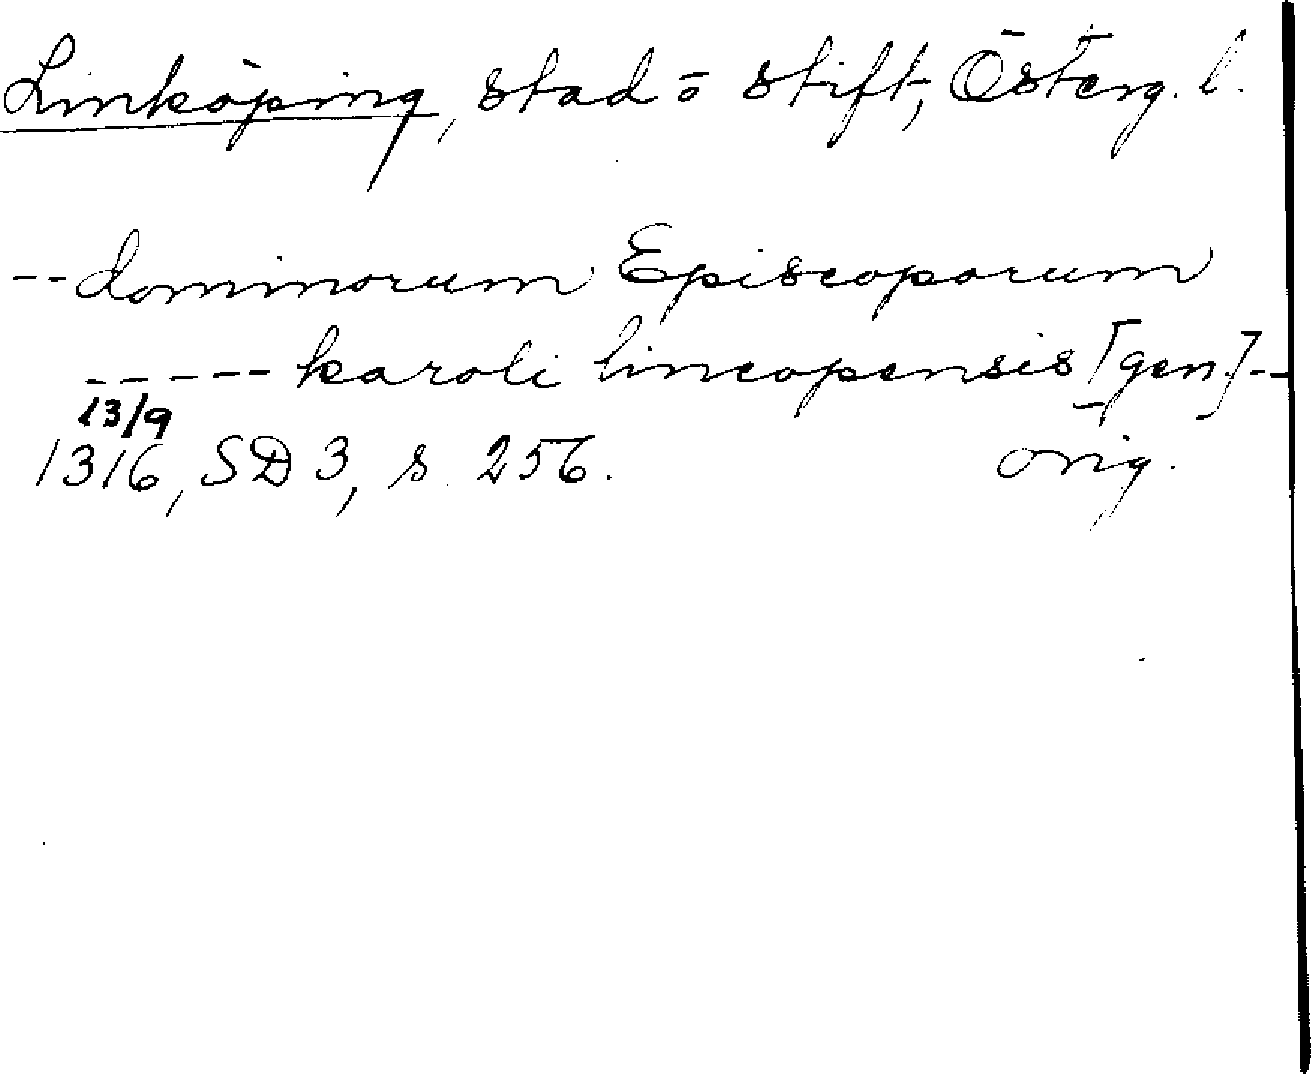 Linköping, stad o stift, Österg. l.
-- dominorum Episcoporum
------ karoli lincopensis [gen] --
13/9
1316, SD 3, s. 256. orig.